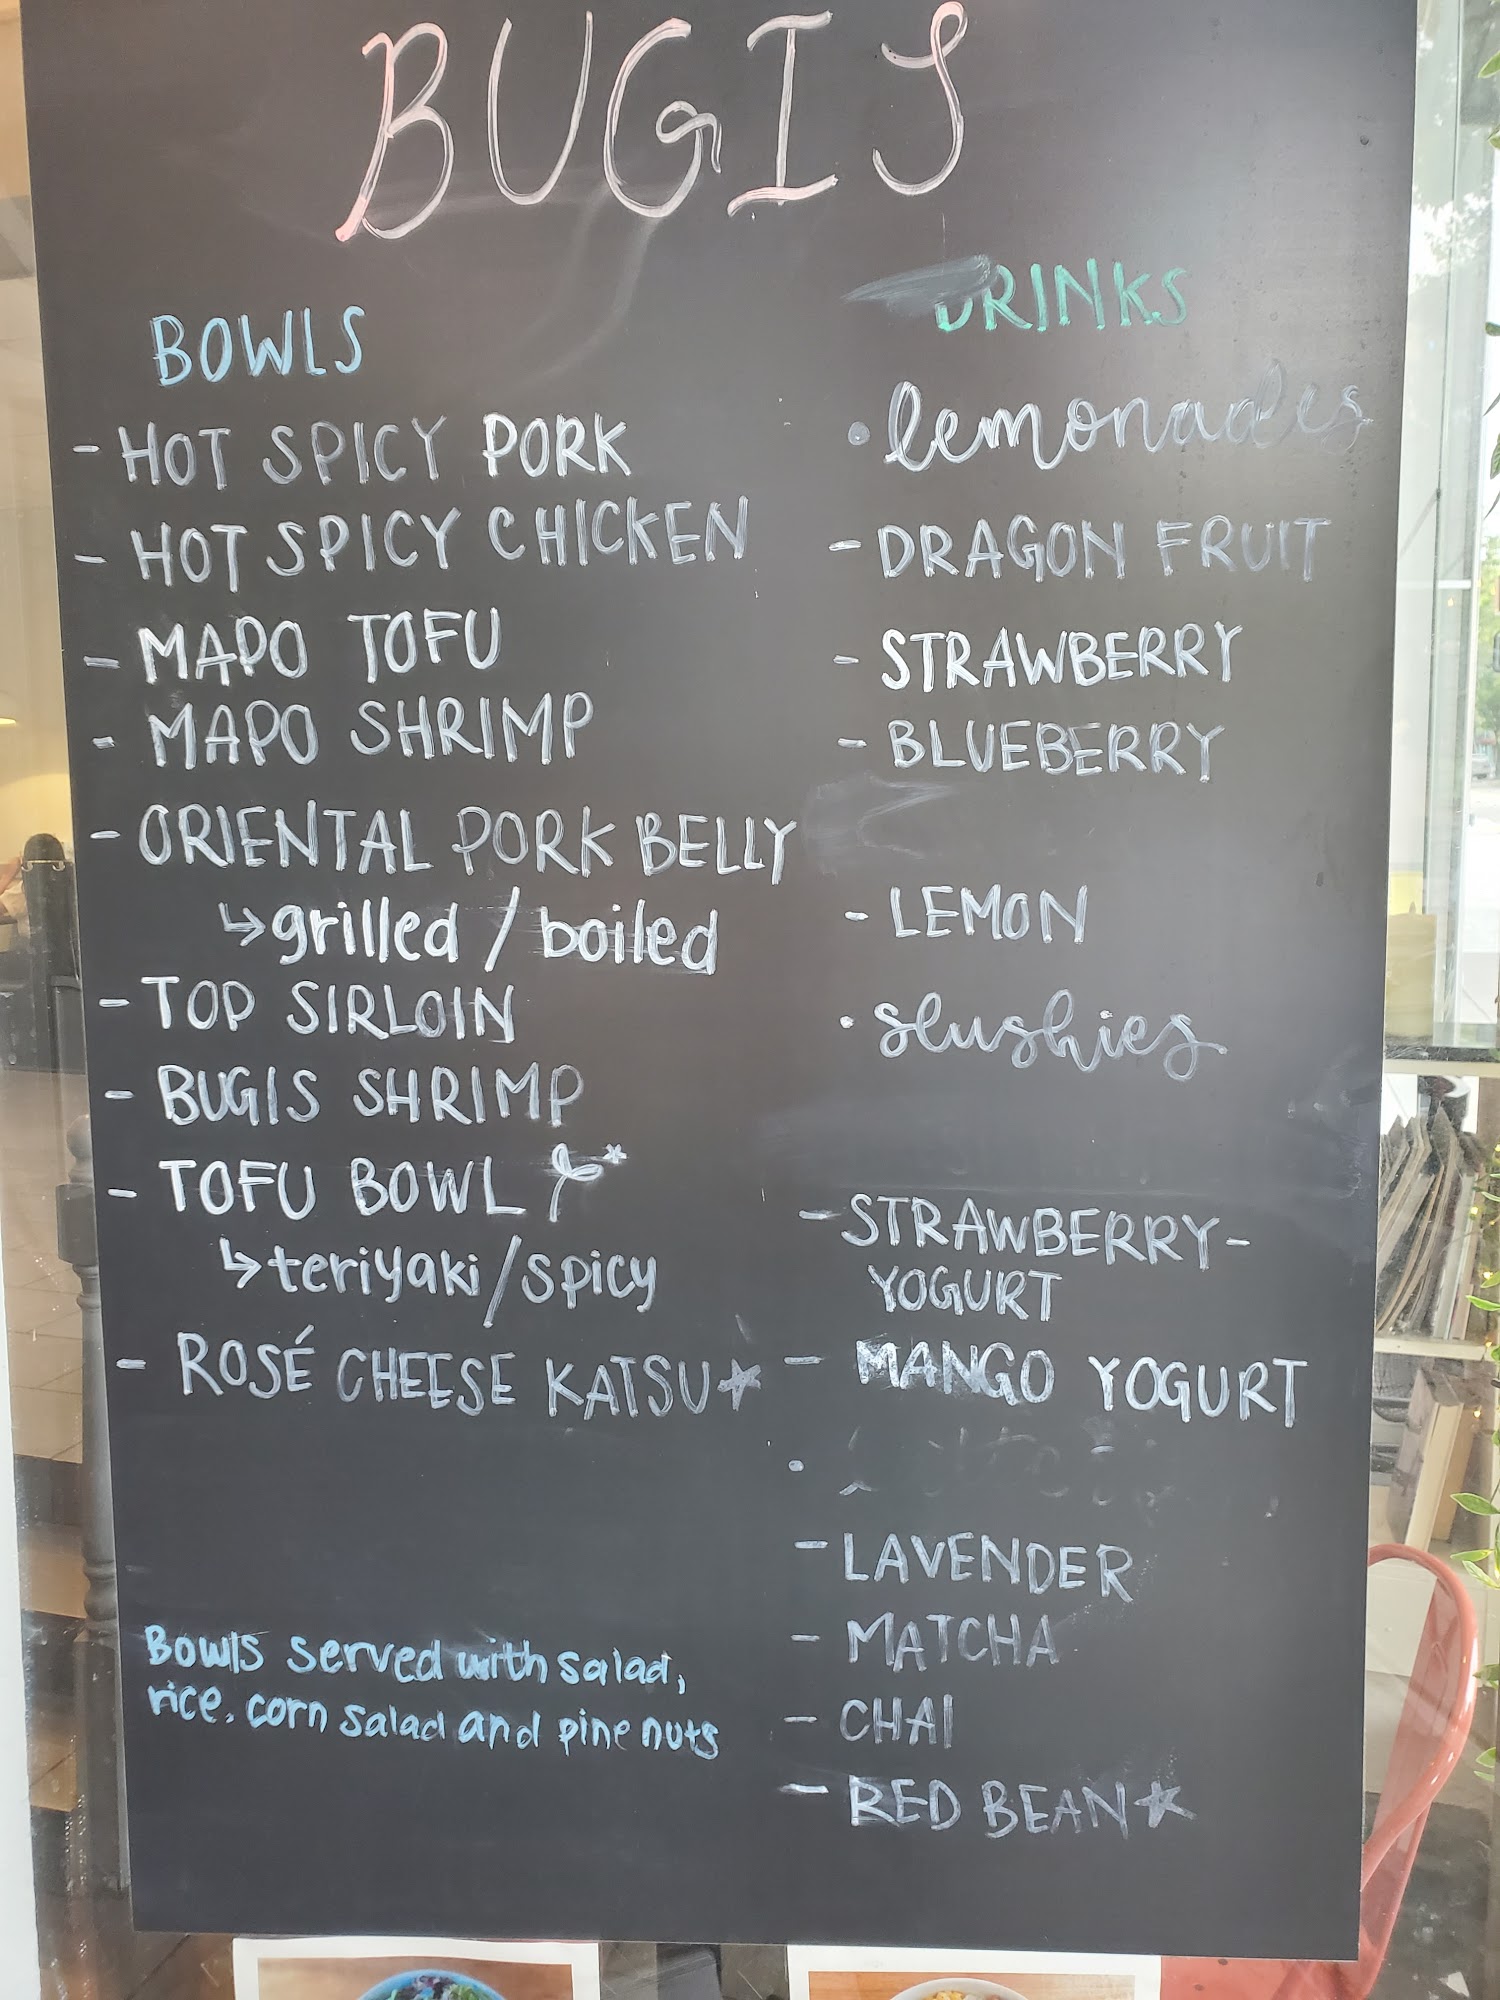 BUGIS
BOWLS
- HOT SPICY PORK
- HOT SPICY CHICKEN
- MAPO TOFU
- MAPO SHRIMP
- ORIENTAL PORK BELLY
↳ grilled / boiled
- TOP SIRLOIN
- BUGIS SHRIMP
- TOFU BOWL
↳ teriyaki/spicy
- ROSÉ CHEESE KATSU★
Bowls served with salad,
rice, corn salad and pine nuts
DRINKS
• lemonades
- DRAGON FRUIT
- STRAWBERRY
- BLUEBERRY
- LEMON
• slushies
- STRAWBERRY-
YOGURT
- MANGO YOGURT
- LAVENDER
- MATCHA
- CHAI
- RED BEAN★